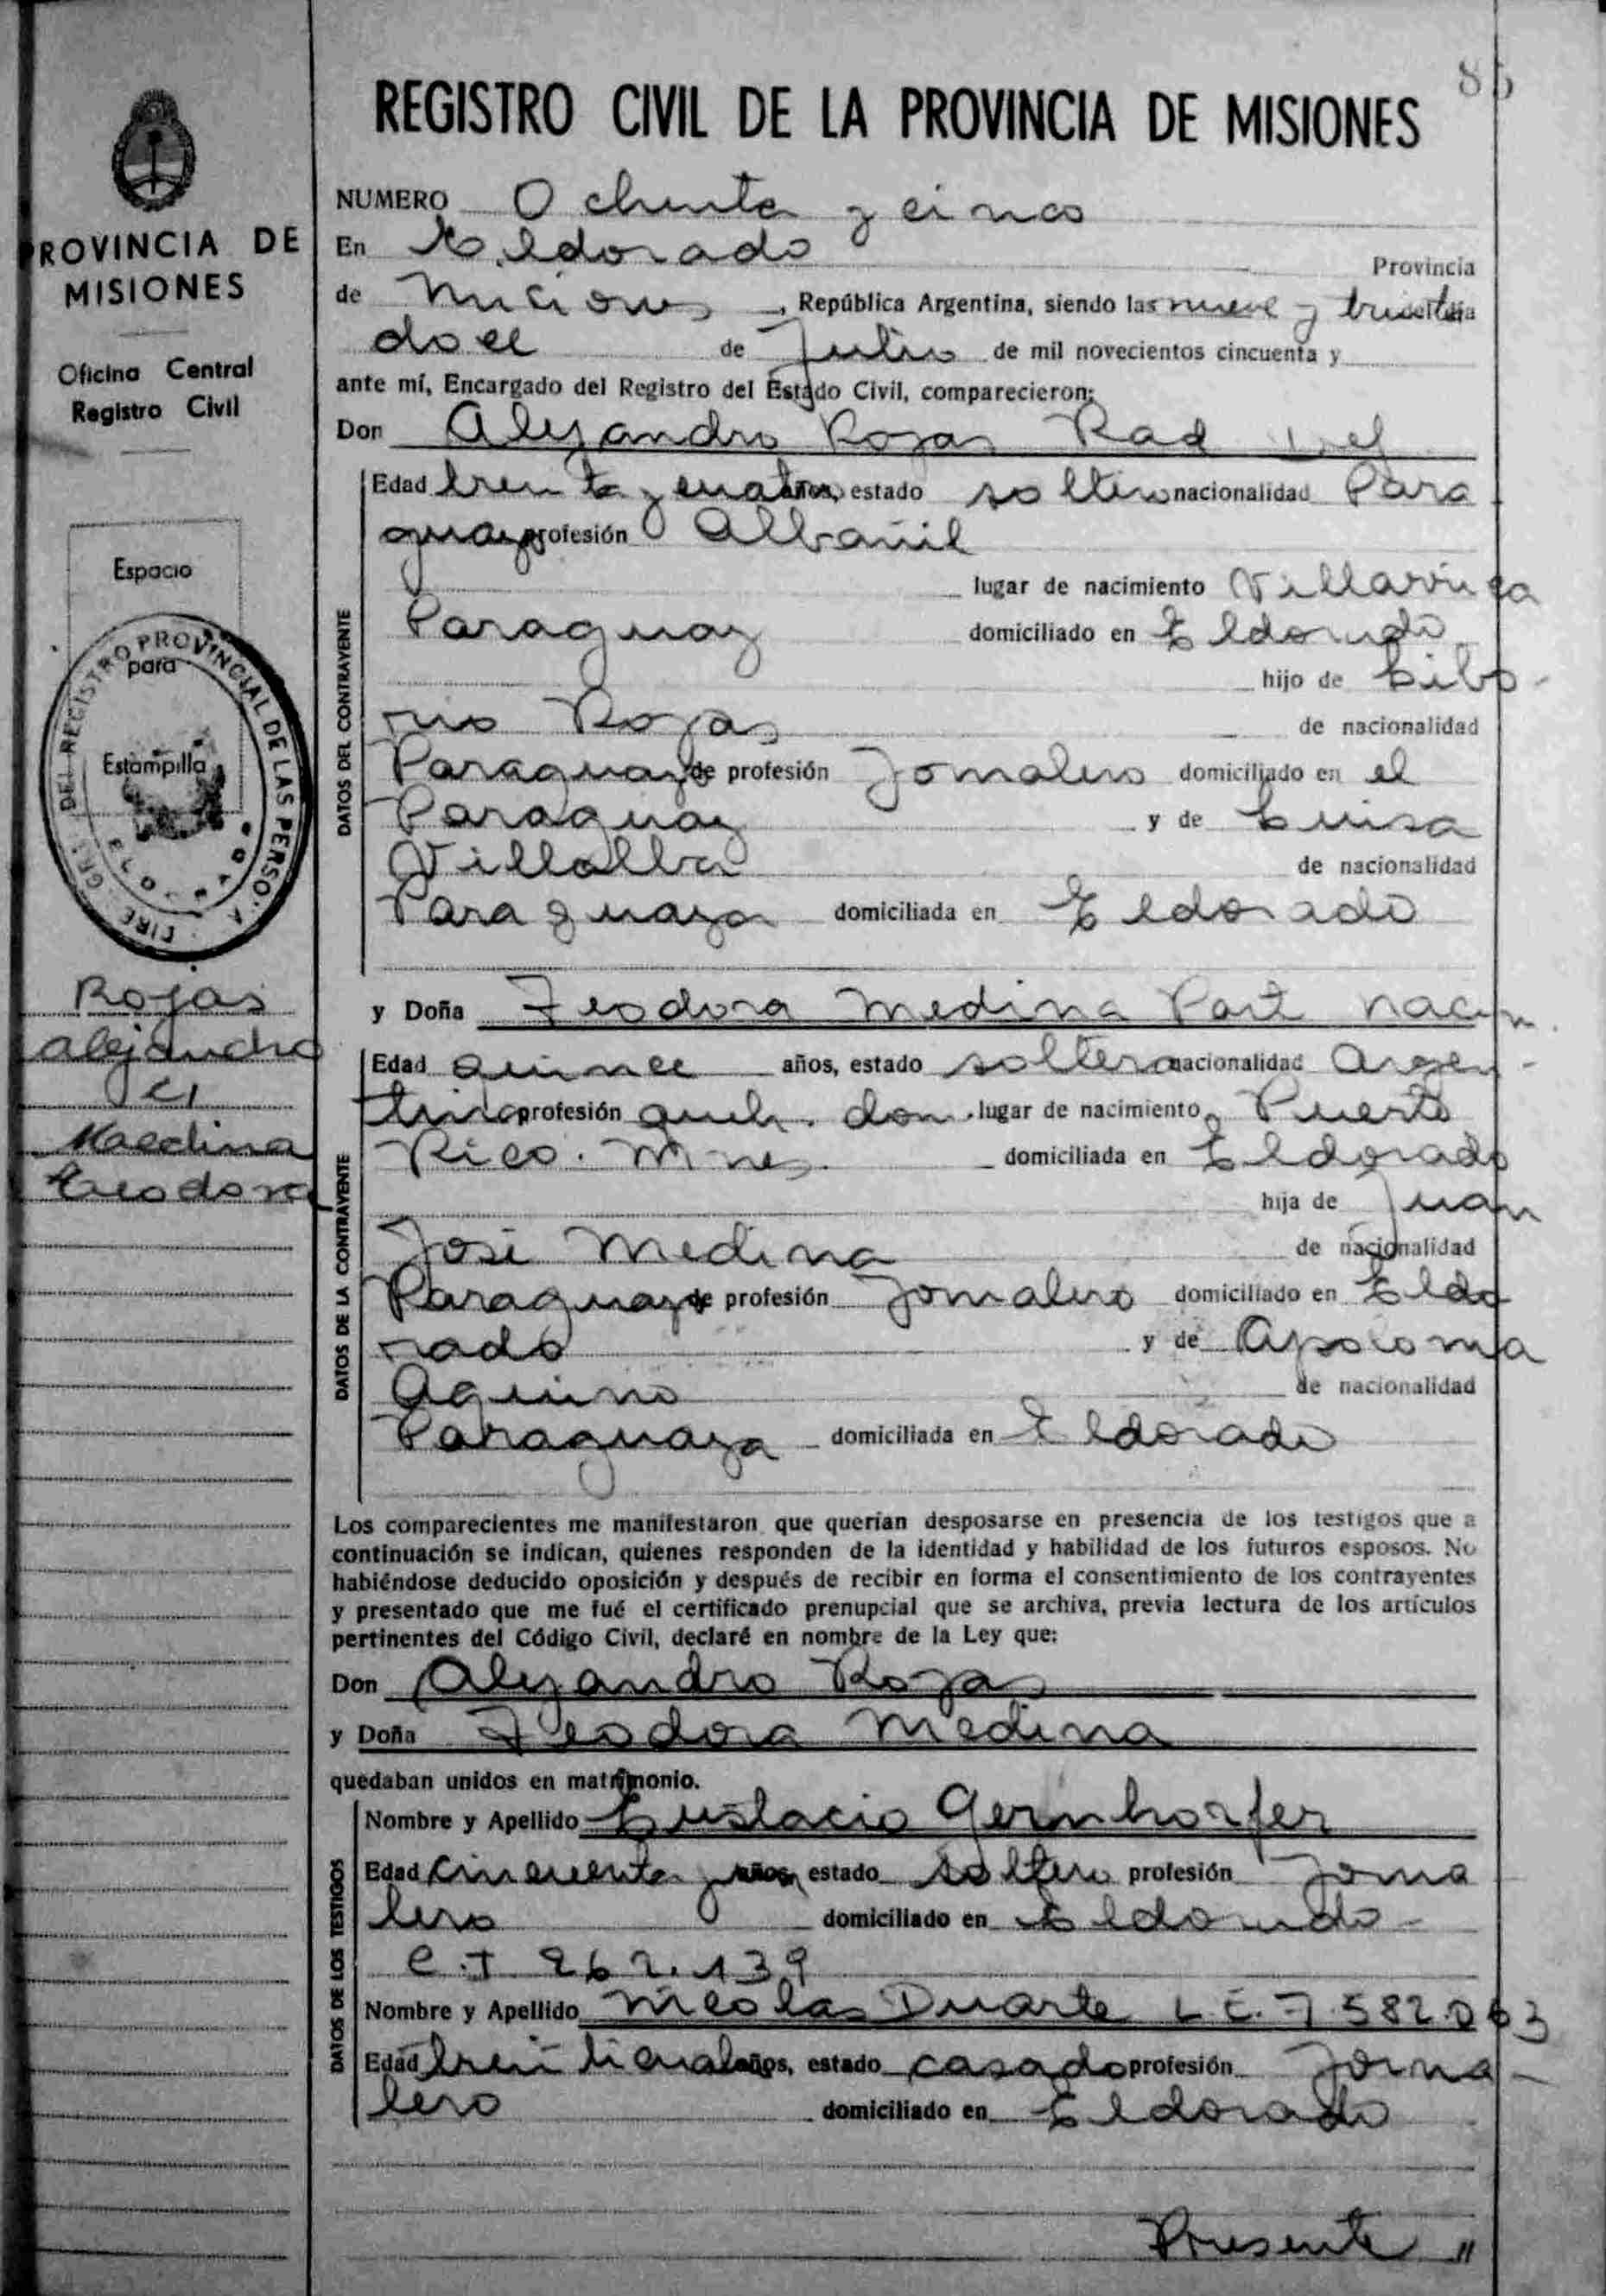 85
REGISTRO CIVIL DE LA PROVINCIA DE MISIONES
PROVINCIA DE
MISIONES
Oficina Central
Registro Civil
Espacio
para
Estampilla
DEL REGISTRO PROVINCIAL DE LAS PERSO
Rojas
Alejandro
c/
Medina
Teodora
NUMERO Ochenta y cinco
En Eldorado Provincia
de Misiones, República Argentina, siendo las nueve y treinta día
doce de Julio de mil novecientos cincuenta y
ante mí, Encargado del Registro del Estado Civil, comparecieron:
Don Alejandro Rojas Rad
DATOS DEL CONTRAYENTE
Edad treinta y cuatro años, estado soltero nacionalidad Para
guayo profesión Albañil
lugar de nacimiento Villarrica
Paraguay domiciliado en Eldorado
hijo de Libo-
rio Rojas de nacionalidad
Paraguayo de profesión Jornalero domiciliado en el
Paraguay y de Luisa
Villalba de nacionalidad
Paraguaya domiciliada en Eldorado
y Doña Teodora Medina Part nacim.
DATOS DE LA CONTRAYENTE
Edad quince años, estado soltera nacionalidad Argen-
tina profesión queh. dom. lugar de nacimiento Puerto
Rico. Mnes. domiciliada en Eldorado
hija de Juan
José Medina de nacionalidad
Paraguayo de profesión Jornalero domiciliado en Eldo
rado y de Apolonia
Aquino de nacionalidad
Paraguaya domiciliada en Eldorado
Los comparecientes me manifestaron que querían desposarse en presencia de los testigos que a
continuación se indican, quienes responden de la identidad y habilidad de los futuros esposos. No
habiéndose deducido oposición y después de recibir en forma el consentimiento de los contrayentes
y presentado que me fué el certificado prenupcial que se archiva, previa lectura de los artículos
pertinentes del Código Civil, declaré en nombre de la Ley que:
Don Alejandro Rojas
y Doña Teodora Medina
quedaban unidos en matrimonio.
DATOS DE LOS TESTIGOS
Nombre y Apellido Eustacio Gernhorfer
Edad cincuenta y años, estado soltero profesión Jorna
lero domiciliado en Eldorado-
C.I 262.139
Nombre y Apellido Nicolas Duarte L E. 7.582.063
Edad treinticuatro años, estado casado profesión Jorna-
lero domiciliado en Eldorado
Presente "